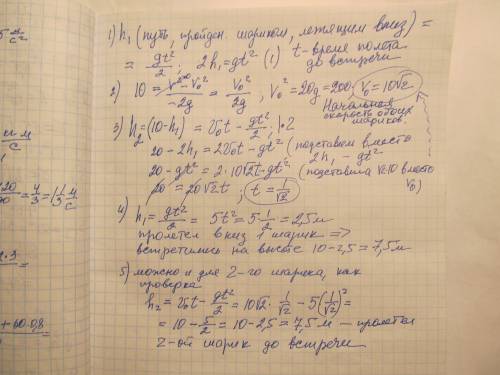 5 м/с²
1) h₁ (путь, пройден. шариком, летящим вниз) =
= gt²/2; 2h₁ = gt² (1) t - время полета до встречи
2) 10 = (V² - V₀²)/(-2g) = V₀²/2g, V₀² = 20g = 200, V₀ = 10√2
Начальная скорость обоих шариков.
3) h₂ = (10-h₁) = V₀t - gt²/2; |·2
20 - 2h₁ = 2V₀t - gt² (подставим вместо 2h₁ - gt²)
20 - gt² = 2·10√2t - gt² (подставила √2·10 вместо V₀)
20 = 20√2t; t = 1/√2
4) h₁ = gt²/2 = 5t² = 5·1/2 = 2,5м
пролетел вниз 1 шарик =>
встретились на высоте 10-2,5 = 7,5м
5) можно и для 2-го шарика, как
проверка
h₂ = V₀t - gt²/2 = 10√2 · 1/√2 - 5(1/√2)² =
= 10 - 5/2 = 10-2,5 = 7,5м — пролетел
2-ой шарик до встречи
= 4/3 = 1 1/3 м/с
+ 60·0,8